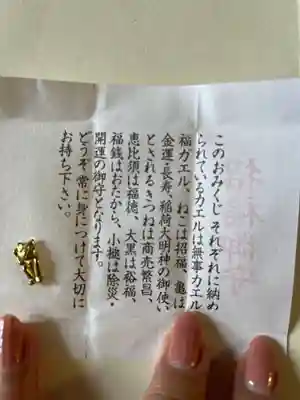 このおみくじ それぞれに納め
られているカエルは無事カエル
福カエル、ねこは招福、亀は
金運・長寿、稲荷大明神の御使い
とされるきつねは商売繁昌、
恵比須は福徳、大黒は裕福、
福銭はおたから、小槌は除災・
開運の御守となります。
どうぞ常に身につけて大切に
お持ち下さい。